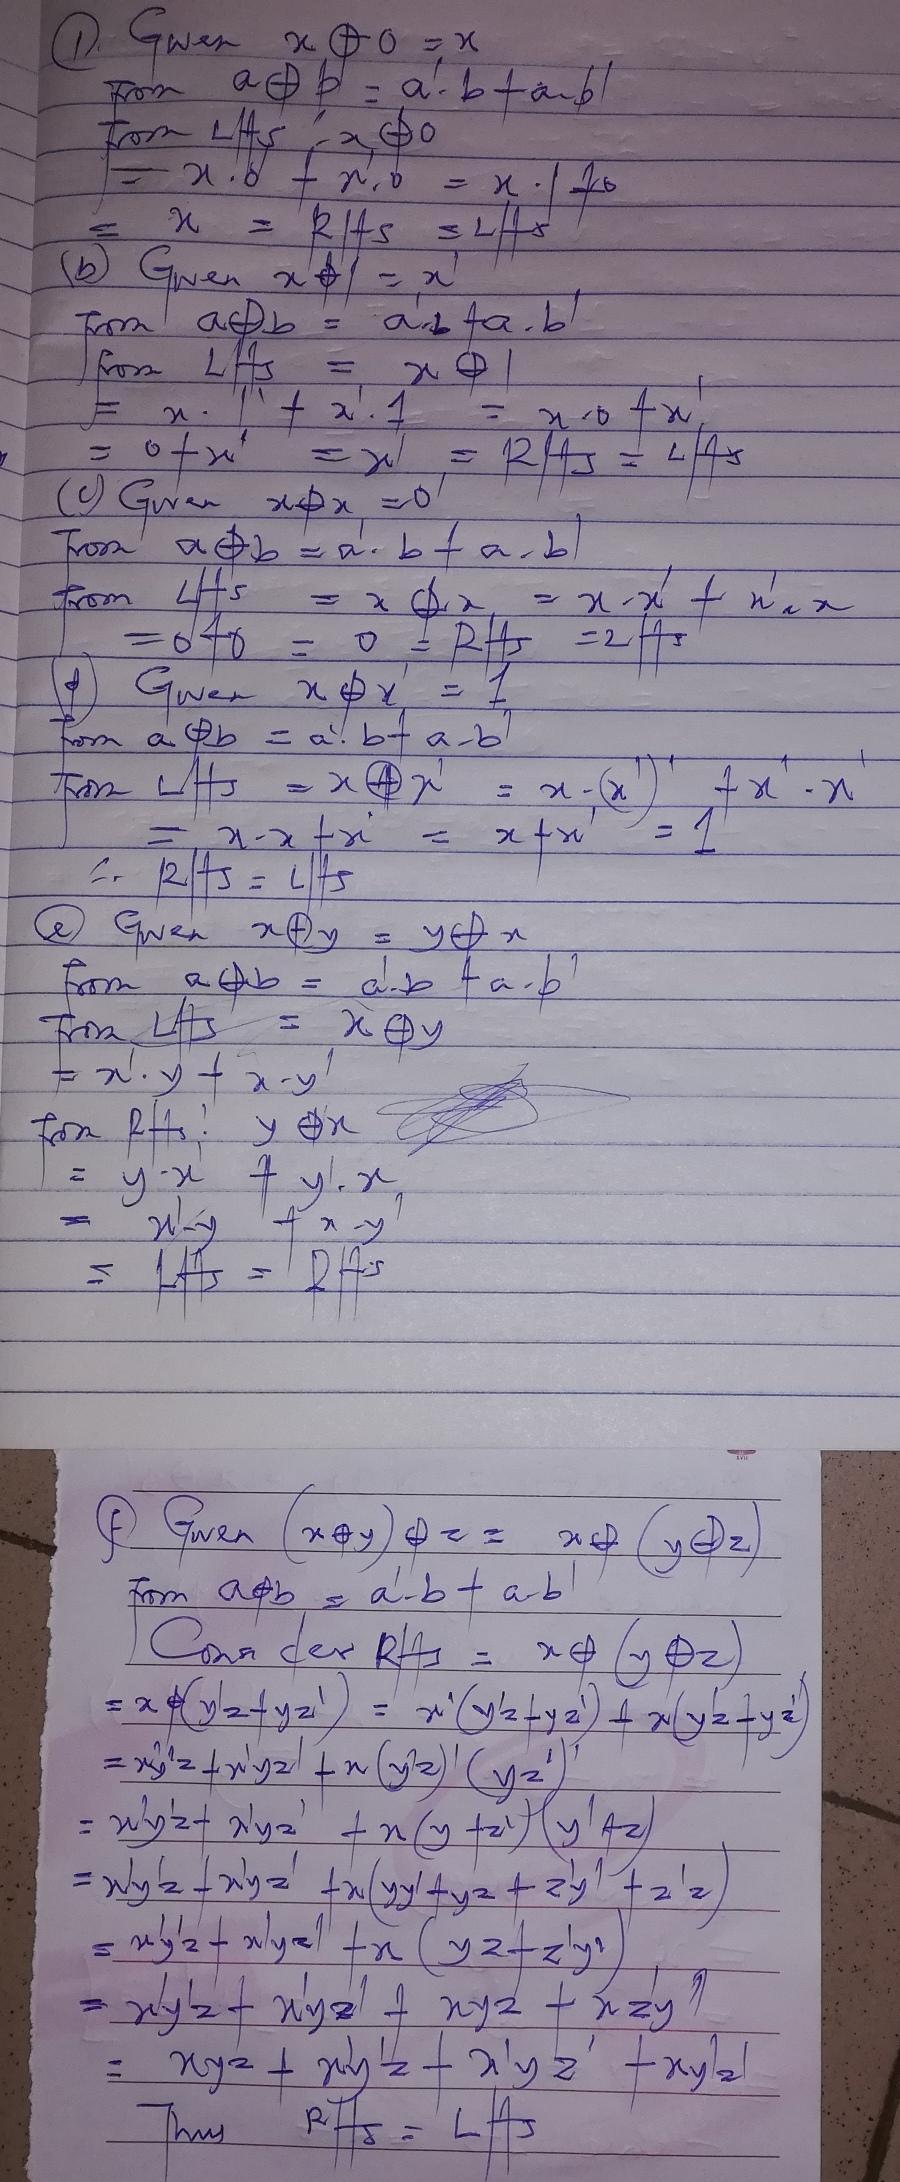 1) Given x ⊕ 0 = x
From a ⊕ b = a'·b + a·b'
From LHS : x ⊕ 0
= x·0' + x'·0 = x·1 + 0
= x = RHS = LHS
(b) Given x ⊕ 1 = x'
From a ⊕ b = a'·b + a·b'
From LHS = x ⊕ 1
= x·1' + x'·1 = x·0 + x'
= 0 + x' = x' = RHS = LHS
(c) Given x ⊕ x = 0
From a ⊕ b = a'·b + a·b'
From LHS = x ⊕ x = x·x' + x'·x
= 0+0 = 0 = RHS = LHS
(d) Given x ⊕ x' = 1
From a ⊕ b = a'·b + a·b'
From LHS = x ⊕ x' = x·(x')' + x'·x'
= x·x + x' = x + x' = 1
∴ RHS = LHS
(e) Given x ⊕ y = y ⊕ x
From a ⊕ b = a'·b + a·b'
From LHS = x ⊕ y
= x'·y + x·y'
From RHS: y ⊕ x
= y·x' + y'·x
= x'·y + x·y'
= LHS = RHS
XVII
(f) Given (x⊕y)⊕z = x⊕(y⊕z)
From a⊕b = a'·b + a·b'
Consider RHS = x⊕(y⊕z)
= x⊕(y'z+yz') = x'(y'z+yz') + x(y'z+yz')'
= x'y'z + x'yz' + x(y'z)'(yz')'
= x'y'z + x'yz' + x(y+z')(y'+z)
= x'y'z + x'yz' + x(yy'+yz+z'y'+z'z)
= x'y'z + x'yz' + x(yz+z'y')
= x'y'z + x'yz' + xyz + xz'y'
= xyz + x'y'z + x'yz' + xy'z'
Thus RHS = LHS